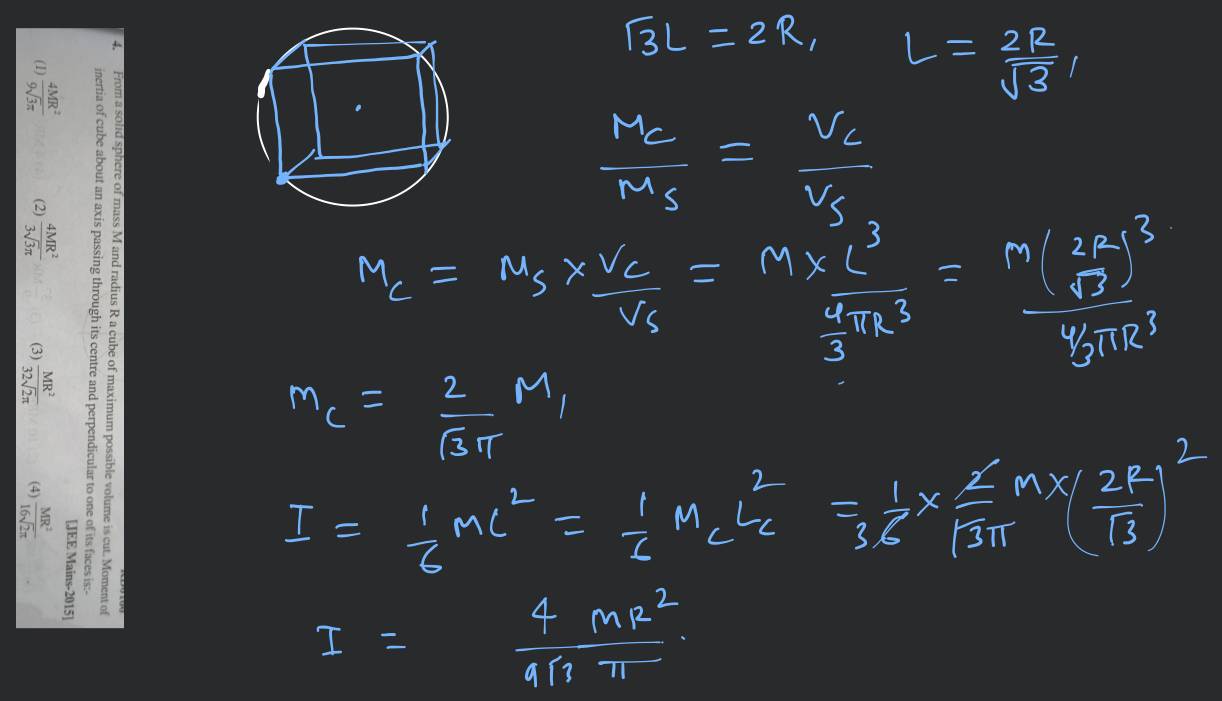 4. From a solid sphere of mass M and radius R a cube of maximum possible volume is cut. Moment of
inertia of cube about an axis passing through its centre and perpendicular to one of its faces is:-
[JEE Mains-2015]
(1) 4MR²/9√3π (2) 4MR²/3√3π (3) MR²/32√2π (4) MR²/16√2π
√3L = 2R, L = 2R/√3,
M_C/M_S = V_C/V_S
M_C = M_S × V_C/V_S = M × L³/(4/3 πR³) = M(2R/√3)³/(4/3 πR³)
m_C = 2/(√3π) M,
I = 1/6 ML² = 1/6 M_C L_C² = 3 1/6 × 2/(√3π) M × (2R/√3)²
I = 4 MR²/(9√3 π).